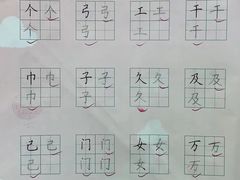 个 个 弓 弓 工 工 千 千
个 弓 工 千
巾 巾 子 子 久 久 及 及
巾 子 久 及
己 己 门 门 女 女 万 万
己 门 门 女 万